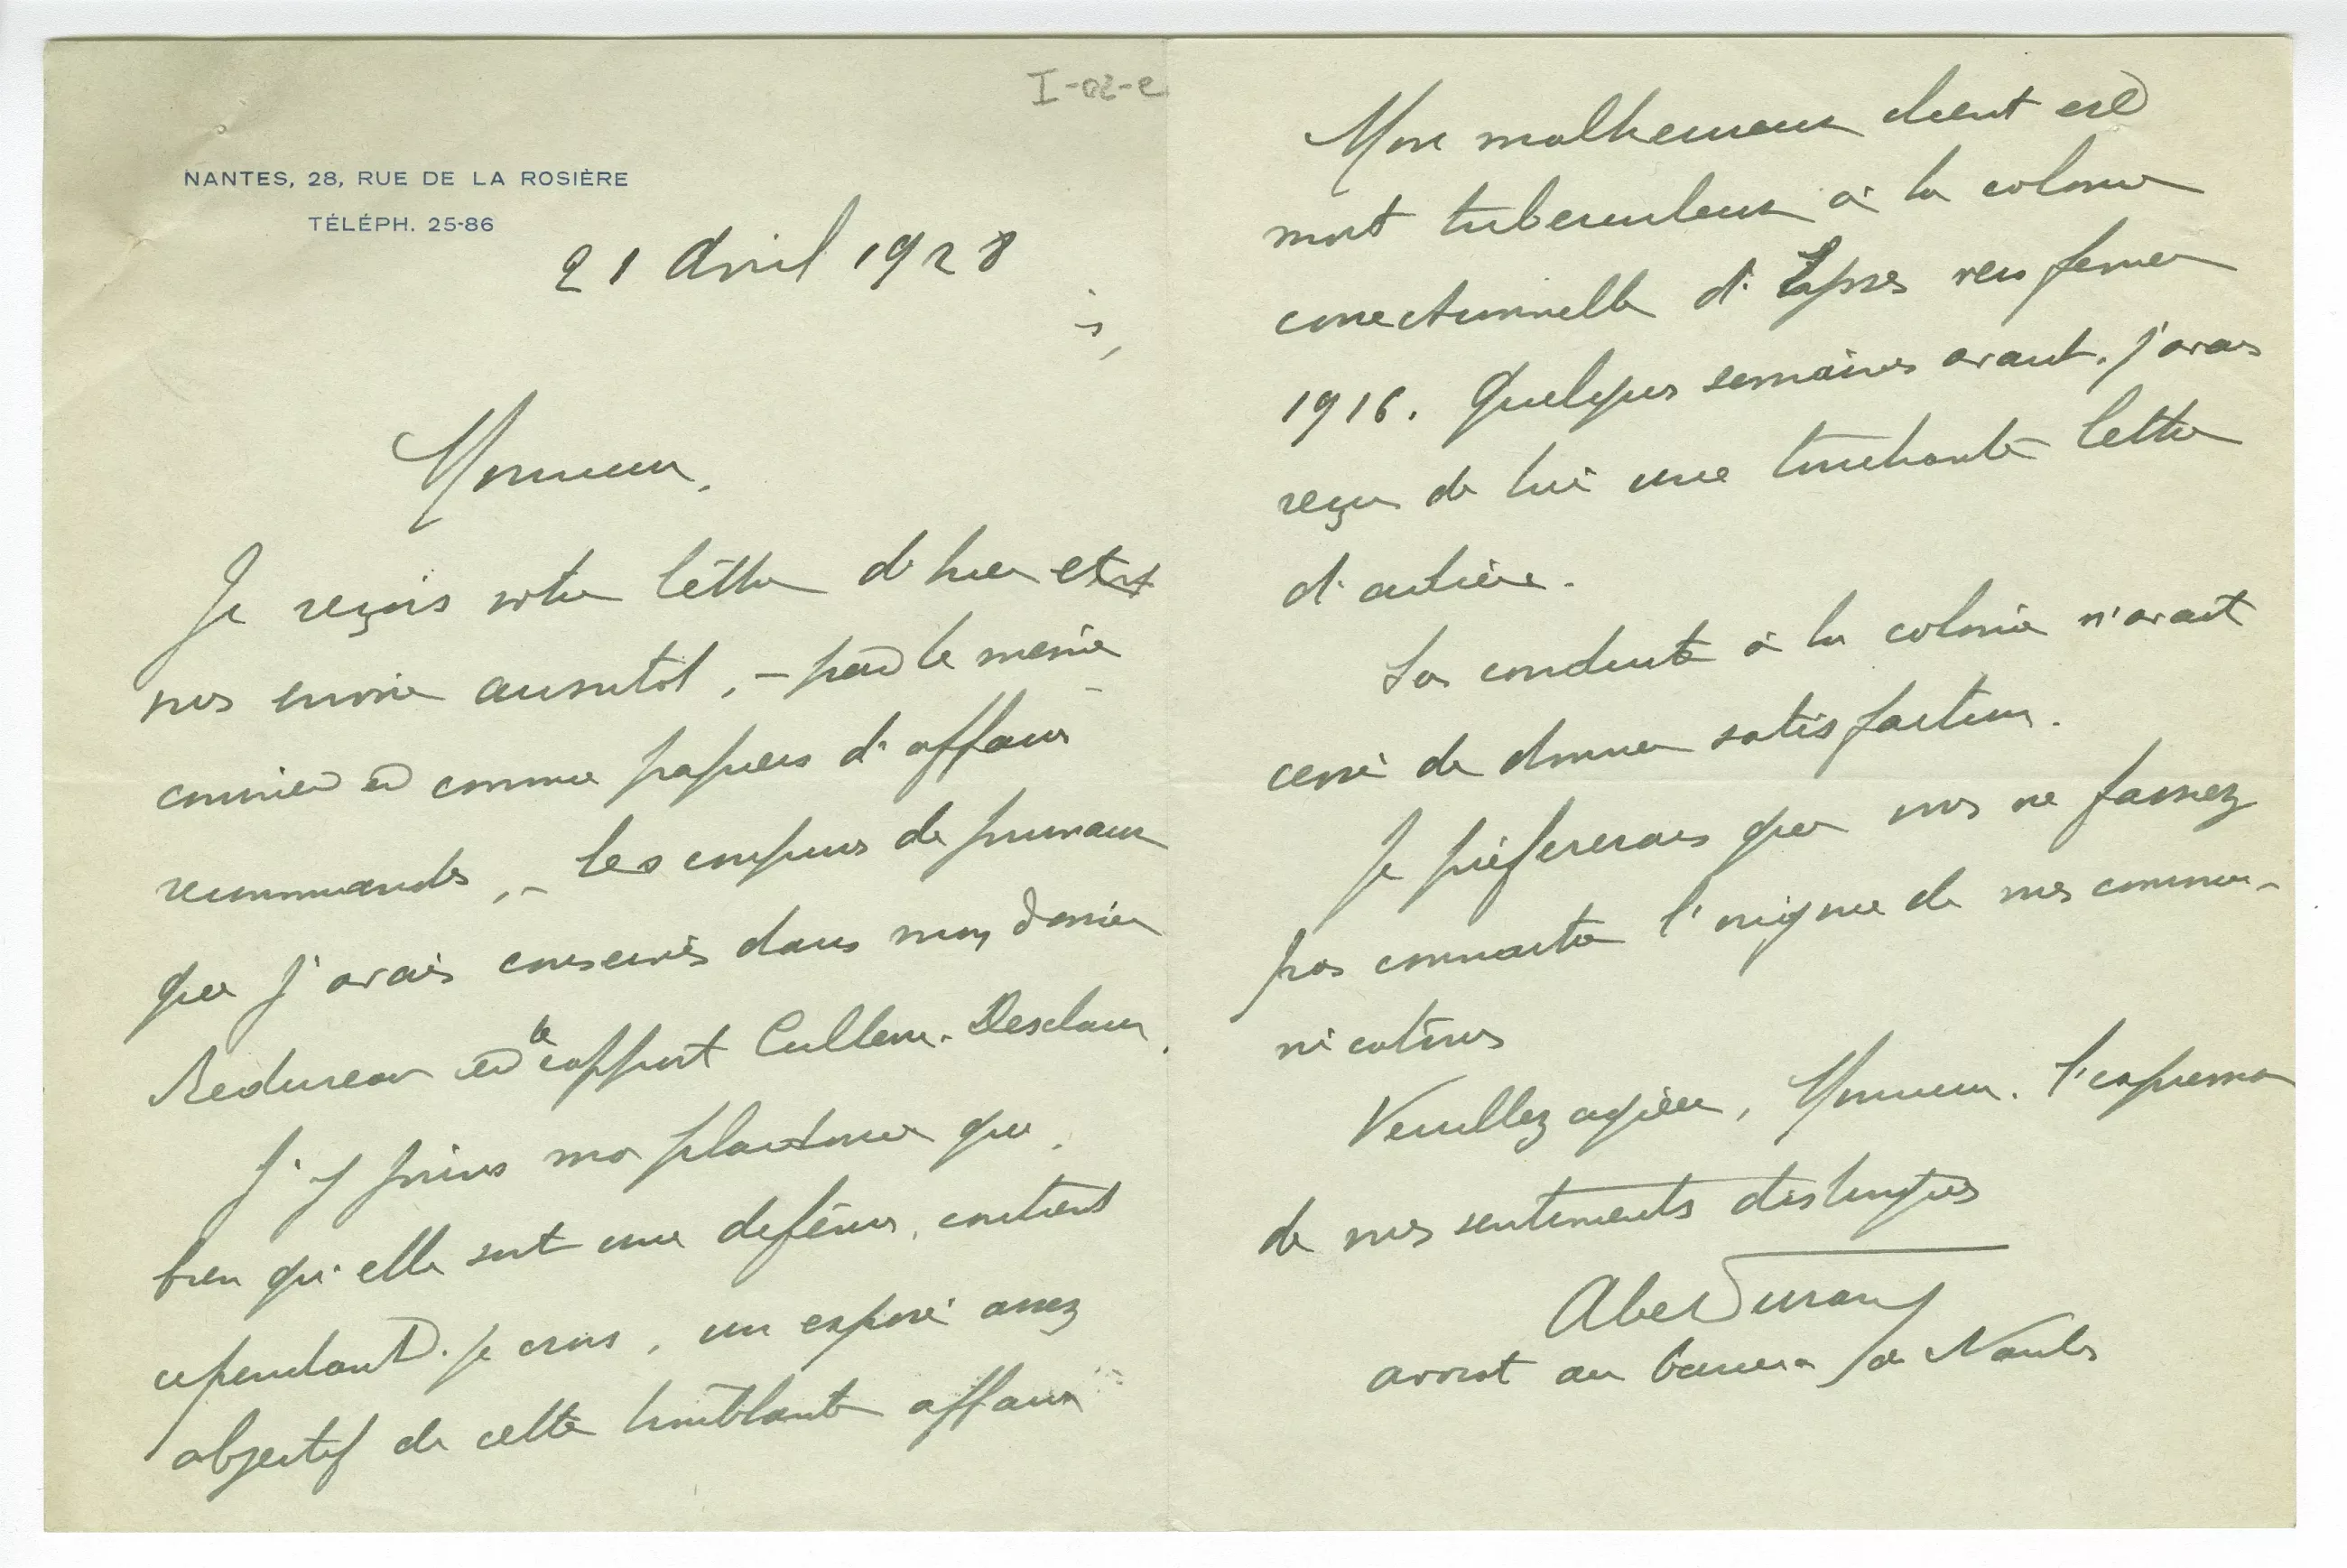 I-02-e
NANTES, 28, RUE DE LA ROSIÈRE
TÉLÉPH. 25-86
21 Avril 1928
Monsieur,
Je reçois votre lettre de hier et
vous envoie aussitôt, – par le même
courrier et comme papiers d'affaires
recommandés, – les coupures de journaux
que j'avais conservées dans mon dossier
Redureau et le rapport Cullerre-Desclaux.
J'y joins ma plaidoirie qui,
bien qu'elle soit une défense, contient
cependant, je crois, un exposé assez
objectif de cette troublante affaire
Mon malheureux client est
mort tuberculeux à la colonie
correctionnelle d' vers février
1916. Quelques semaines avant, j'avais
reçu de lui une touchante lettre
d'adieu.
Sa conduite à la colonie n'avait
cessé de donner satisfaction.
Je préférerais que vous ne fassiez
pas connaître l'origine de mes commu-
nications
Veuillez agréer, Monsieur, l'expression
de mes sentiments distingués
Abel Durand
avocat au barreau de Nantes